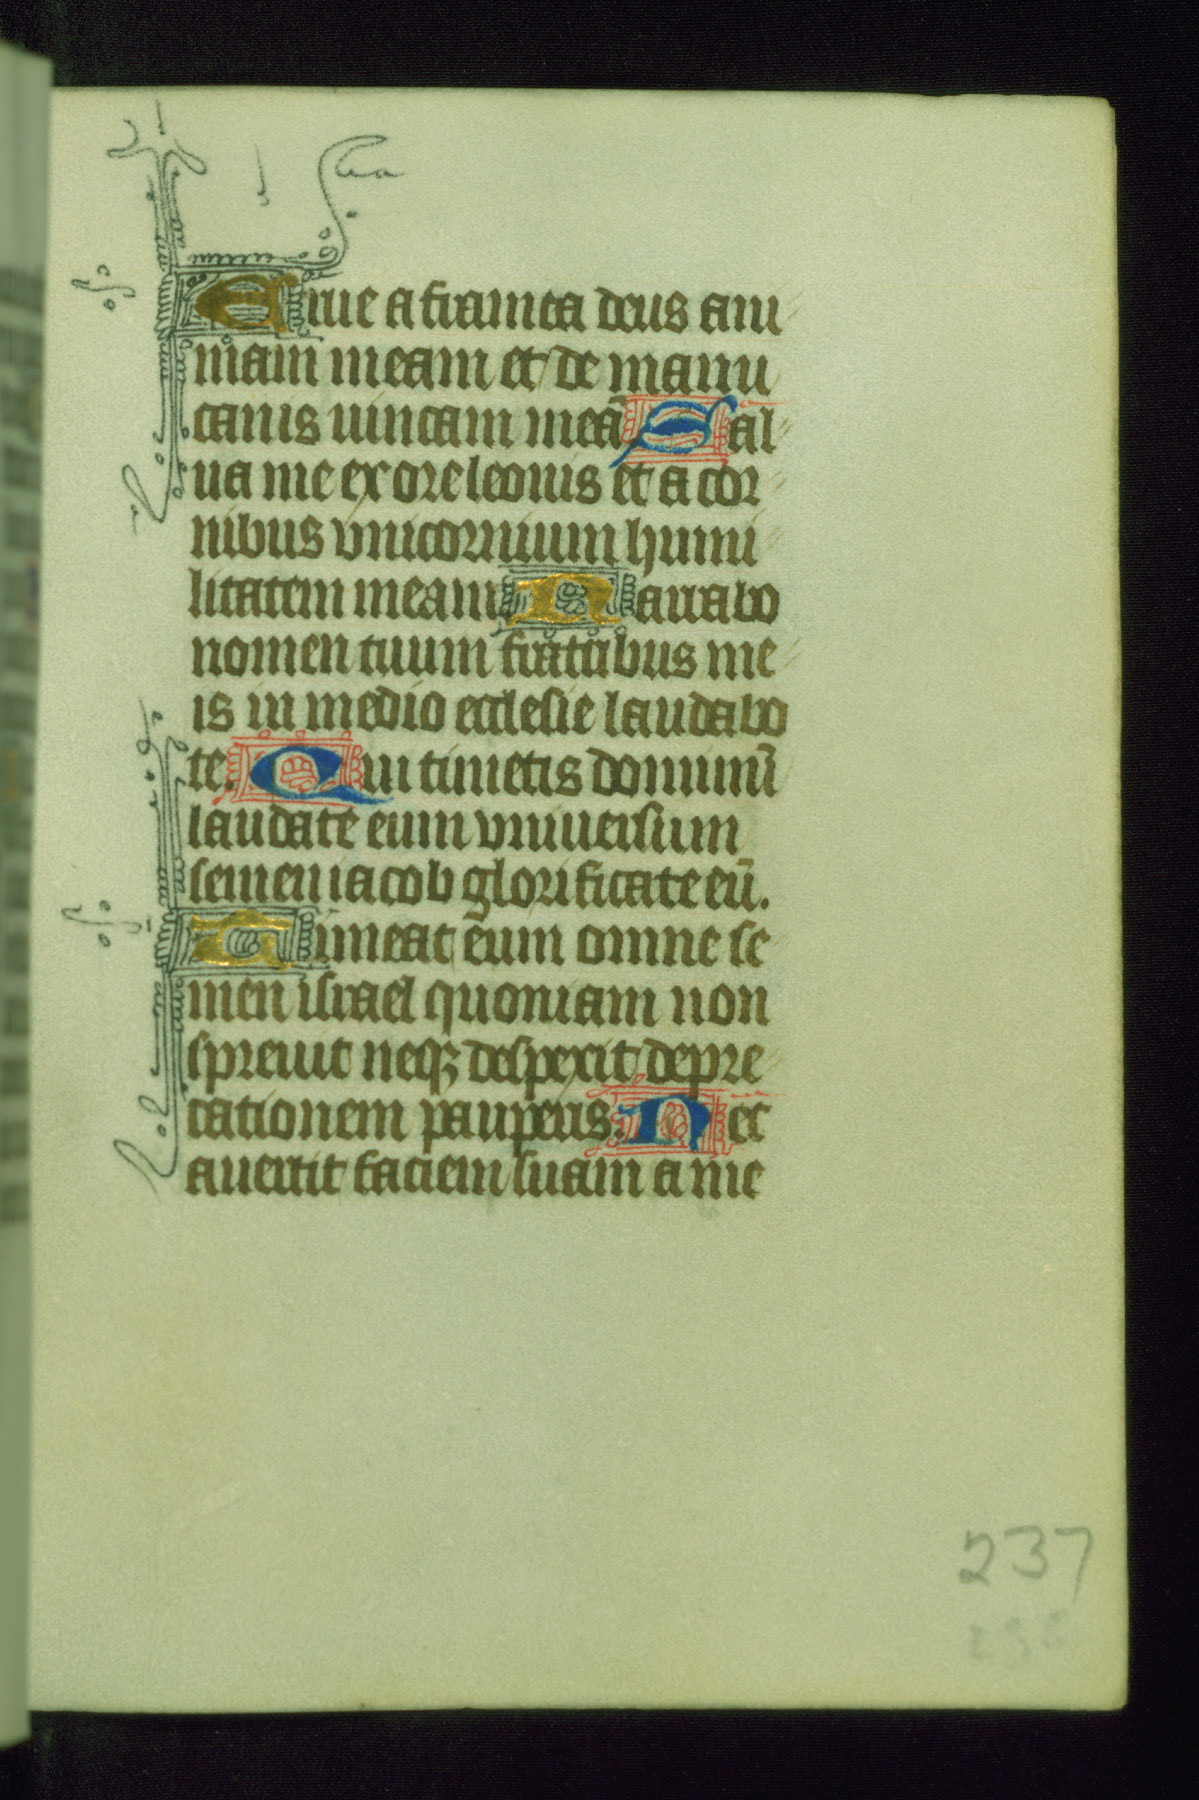 Erue a framea deus ani
mam meam et de manu
canis unicam meā Sal
ua me ex ore leonis et a cor
nibus vnicornium humi
litatem meam Narrabo
nomen tuum fratribus me
is in medio ecclesie laudabo
te. Qui timetis dominū
laudate eum vniuersum
semen iacob glorificate eū.
Timeat eum omne se
men israel quoniam non
spreuit neqꝫ despexit depre
cationem pauperis. Nec
auertit faciem suam a me
237